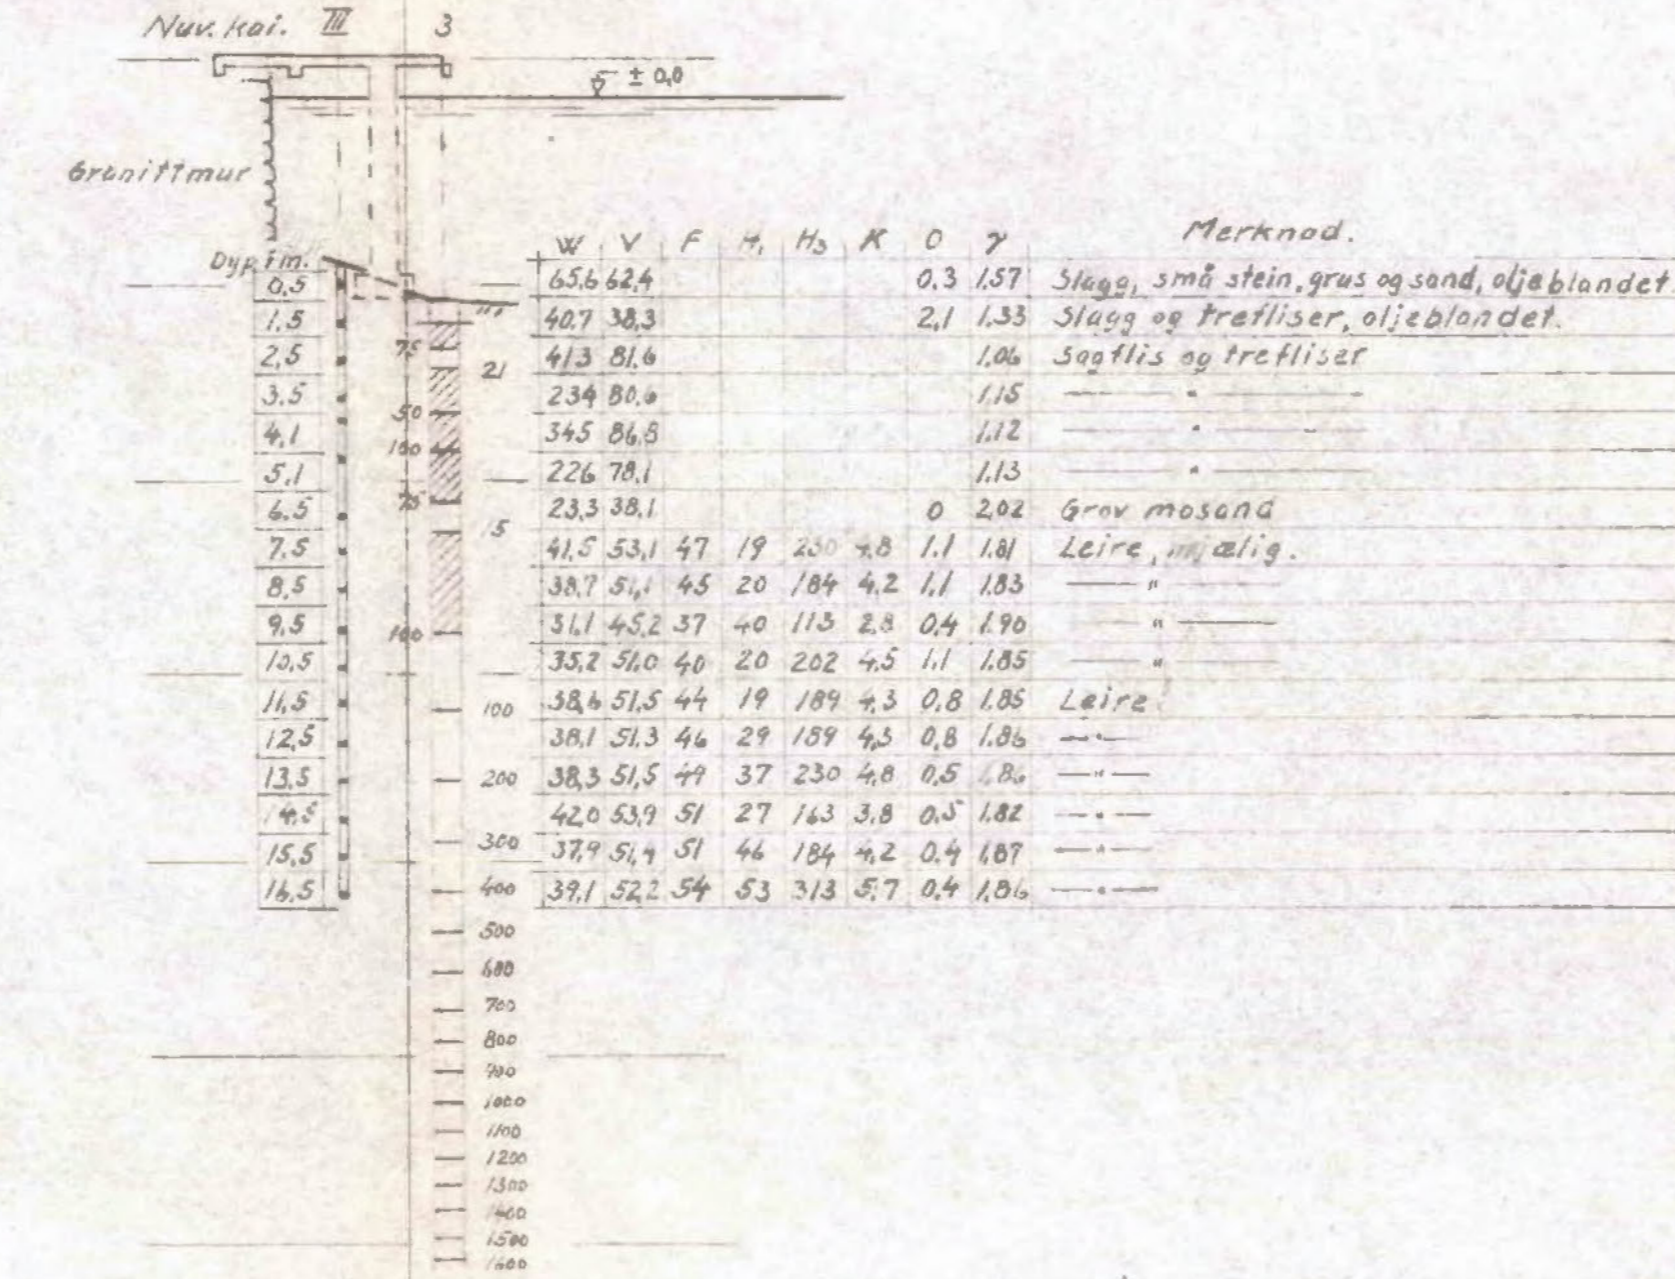 Nuv. kai. III 3
± 0,0
Granittmur
Dyp i m. W V F H₁ H₃ K O γ Merknad.
0.5 65.6 62.4 0.3 1.57 Slagg, små stein, grus og sand, oljeblandet.
1.5 40.7 38.3 2,1 1.33 Slagg og trefliser, oljeblandet.
2,5 75 21 413 81.6 1.06 Sagflis og trefliser
3.5 50 234 80.6 1.15 — " —
4,1 100 345 86.8 1.12 — " —
5,1 226 78,1 1.13 — " —
6.5 75 15 23,3 38,1 0 2,02 Grov mosand
7.5 41,5 53,1 47 19 230 4.8 1.1 1.81 Leire, mjælig.
8,5 38,7 51,1 45 20 184 4.2 1,1 1.83 — " —
9,5 100 31,1 45,2 37 40 113 2,8 0,4 1.90 — " —
10,5 35,2 51,0 40 20 202 4,5 1,1 1.85 — " —
11,5 100 38,6 51,5 44 19 189 4,3 0,8 1.85 Leire
12,5 38,1 51,3 46 29 189 4,3 0,8 1.86 — " —
13,5 200 38,3 51,5 49 37 230 4,8 0,5 1.86 — " —
14,5 42,0 53,9 51 27 163 3,8 0,5 1.82 — " —
15,5 300 37,9 51,4 51 46 184 4,2 0,4 1,87 — " —
16,5 400 39,1 52,2 54 53 313 5,7 0,4 1.86 — " —
500
600
700
800
900
1000
1100
1200
1300
1400
1500
1600